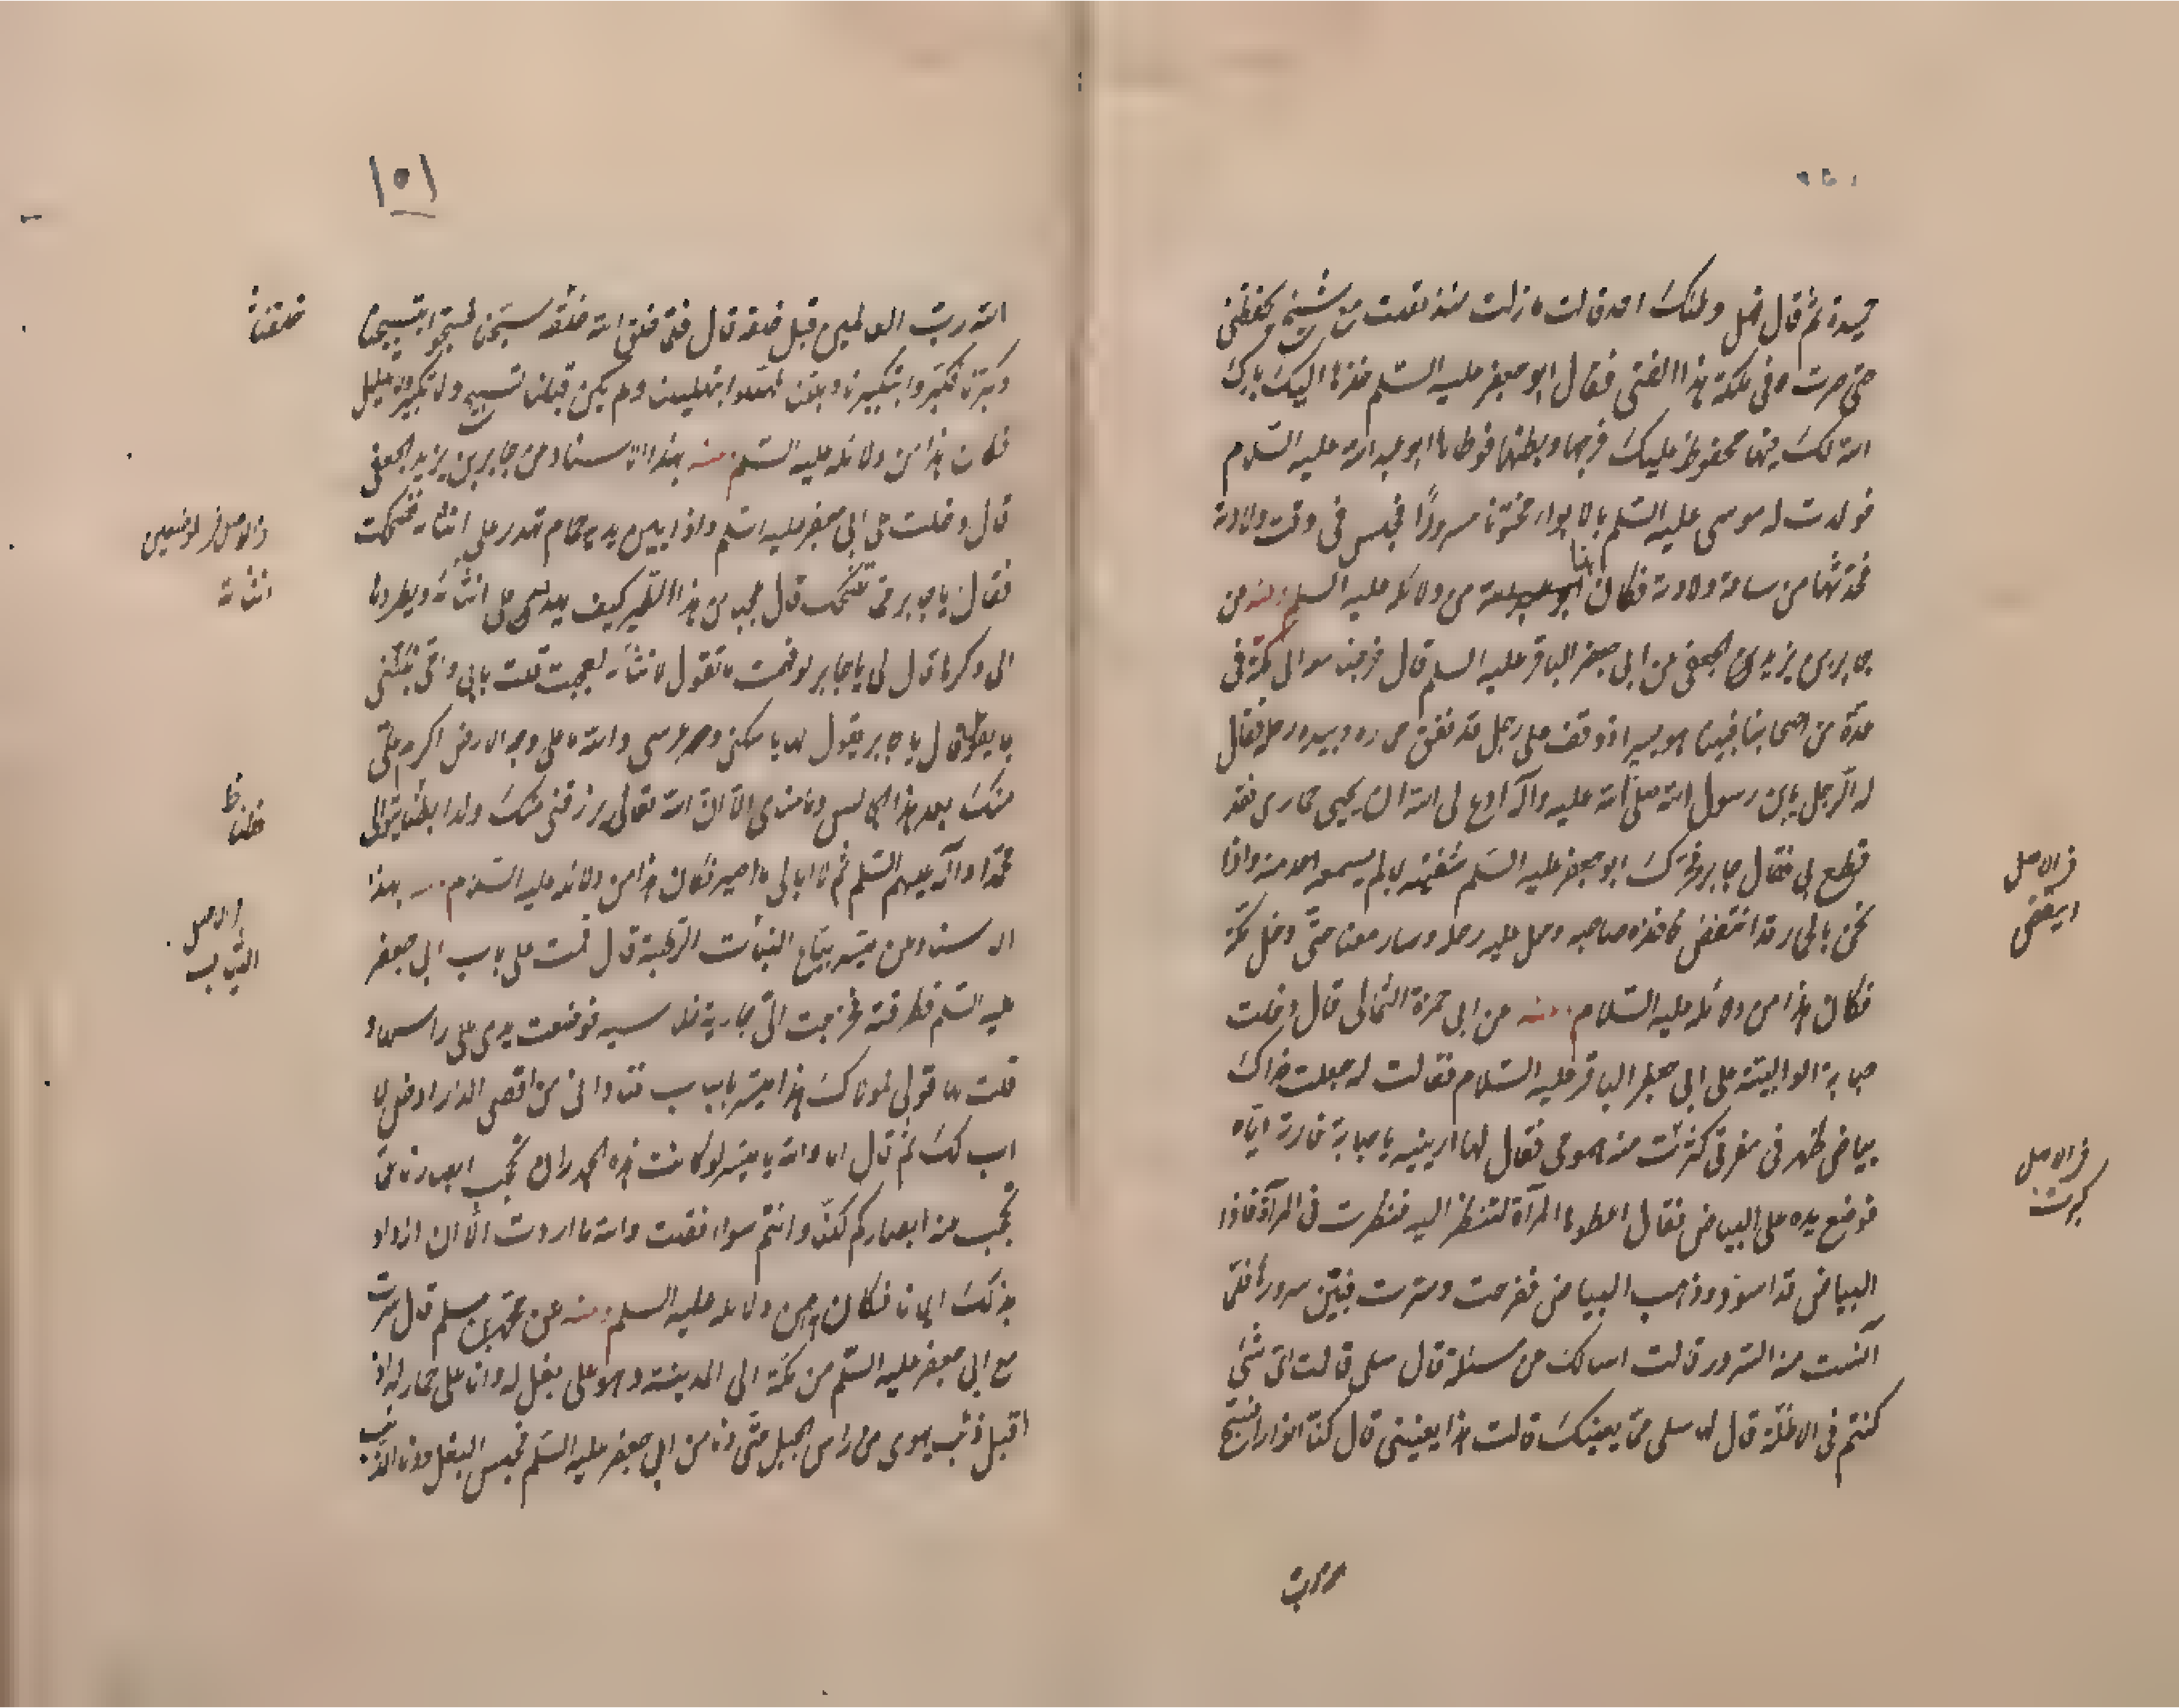 حميدة ثم قال هل ولمك احد قالت ما زلت منذ بقيت مع شيخ يحفظني
حتى صرت في ملكة هذا الفتى فقال ابو جعفر عليه السلم خذها اليك بارك
الله لك فيها محفوظ عليك فرجها وبطنها فوطاها ابو عبد الله عليه السلام
فولدت له موسى عليه السلم بالابواء مختونا مسرورًا فجلس في وقت ولادته
فحدثهما من ساعة ولادته فكان من دلائله عليه السلم منه عن
جابر بن يزيد الجعفي عن ابي جعفر الباقر عليه السلم قال خرجنا سوا الى مكة في
عدة من اصحابنا فبينا هو يسير اذ وقف على رجل قد نفق حماره وبيده رحله فقال
له الرجل يابن رسول الله صلى الله عليه وآله ادع لى الله ان يحيى حمارى فقد
قطع بي فقال جابر فحرك ابو جعفر عليه السلم شفتيه بما لم يسمعه احد منه واذا
نحن بالحمار قد انتفض فاخذه صاحبه وحمل عليه رحله وسار معنا حتى دخل مكة
فكان هذا من دلائله عليه السلام منه عن ابي حمزة الثمالى قال دخلت
حبابة الوالبيّة على ابي جعفر الباقر عليه السلام فقالت له جعلت فداك
بياض ظهر في مفرقي كثرت منه همومي فقال لها ارينيه يا حبابة فارته اياه
فوضع يده على البياض فقال اعطوها المرآة لتنظر اليه فنظرت في المرآة فاذا
البياض قد اسودّ وذهب البياض ففرحت وسرت فتبين سرورها فقى
آنست منه السرور قالت اسالك عن مسئلة قال سلى قالت اىّ شئ
كنتم في الاظلّة قال لها سلى عمّا يعنيك قالت هذا يعينني قال كنّا انوارا نسبّح
الله رب
في الاصل
انتفض
في الاصل
كبرت
١٥١
الله ربّ العالمين قبل خلقه قال فلما خلق الله خلقه سبّحنا فسبّحوا بتسبيحنا
وكبّرنا فكبّروا بتكبيرنا وهلّلنا فهلّلوا بتهليلنا ولم يكن قبلنا تسبيح ولا تكبير ولا تهليل
فكان هذا من دلائله عليه السلم منه بهذا الاسناد عن جابر بن يزيد الجعفي
قال دخلت على ابي جعفر عليه السلم واذا بين يديه حمام تهدر على انثاه فضحكت
فقال يا جابر ممّا تضحك قال عجبا من هذا الطير كيف يهدر على انثاه ويطردها
الى وكرها قال لي يا جابر لو فهمت ما تقول لانثاه لعجبت قلت بابي وامّي نبّئني
بما يقول قال يا جابر يقول لها يا سكنى وعرسى والله ما على وجه الارض اكرم علىّ
منك بعد هذا الجالس وما مناى الا انّ الله تعالى يرزقنى منك ولدا بطنا يتوالى
محمّدا وآله عليهم السلم ثم لا ابالى ما اصير فكان هذا من دلائله عليه السلام منه بهذا
الاسناد عن ميسّر بيّاع النبات الرطبة قال قمت على باب ابي جعفر
عليه السلم فطرقته فخرجت الىّ جارية خماسيه فوضعت يدى على راسها و
قلت لها قولى لمولاك هذا ميسّر بالباب فنادانى من اقصى الدار ادخل لا
اب لك ثم قال اما والله يا ميسر لو كانت هذه الجدران تحجب ابصارنا عمّا
تحجب عنه ابصاركم لكنّا وانتم سواء فقلت والله ما اردت الّا ان ازداد
بذلك ايمانا فكان هذا من دلائله عليه السلم منه عن محمّد بن مسلم قال سرت
مع ابي جعفر عليه السلم من مكة الى المدينة وهو على بغل له وانا على حمار لى اذ
اقبل ذئب يهوى من راس الجبل حتى دنا من ابي جعفر عليه السلم فحبس البغل ودنا الذئب
خلقنا
في الاصل في الموضعين
انثاه
الاصل